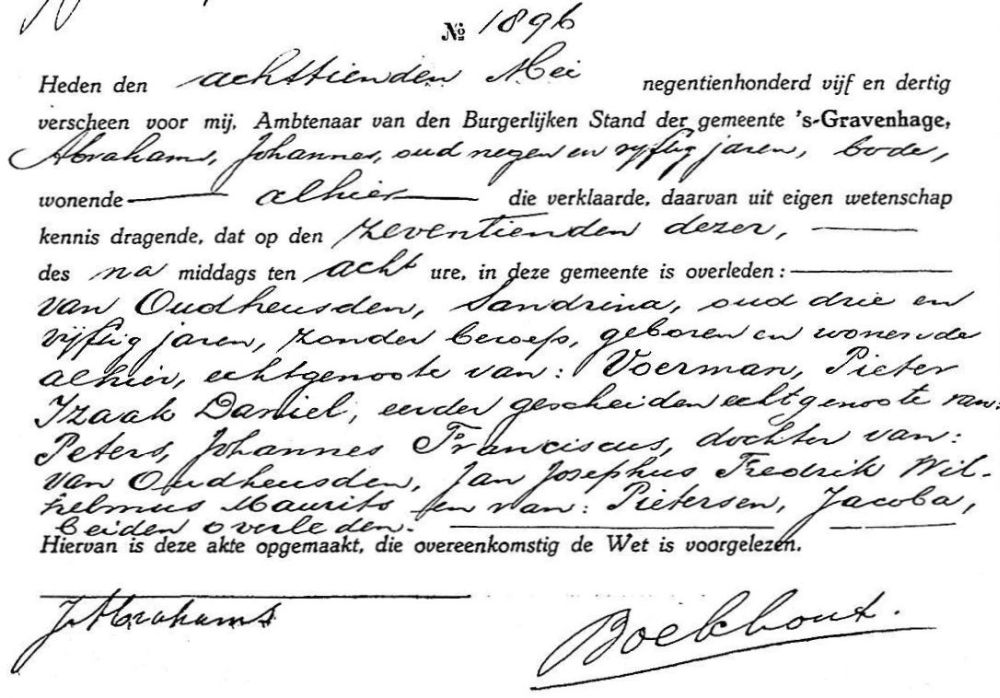 № 1896
Heden den achttienden Mei negentienhonderd vijf en dertig
verscheen voor mij, Ambtenaar van den Burgerlijken Stand der gemeente 's-Gravenhage,
Abrahams, Johannes, oud negen en vijftig jaren, bode,
wonende alhier die verklaarde, daarvan uit eigen wetenschap
kennis dragende, dat op den zeventienden dezer,
des na middags ten acht ure, in deze gemeente is overleden:
van Oudheusden, Sandrina, oud drie en
vijftig jaren, zonder beroep, geboren en wonende
alhier, echtgenoote van: Voerman, Pieter
Izaak Daniel, eerder gescheiden echtgenoote van:
Peters, Johannes Franciscus, dochter van:
van Oudheusden, Jan Josephus Fredrik Wil-
helmus Maurits en van: Pietersen, Jacoba,
beiden overleden.
Hiervan is deze akte opgemaakt, die overeenkomstig de Wet is voorgelezen.
J Abrahams
Boekhout.